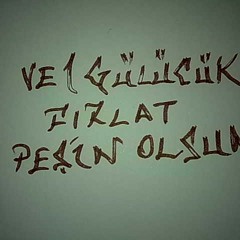 VE 1 GÜLÜCÜK
FIRLAT
PEŞİN OLSUN